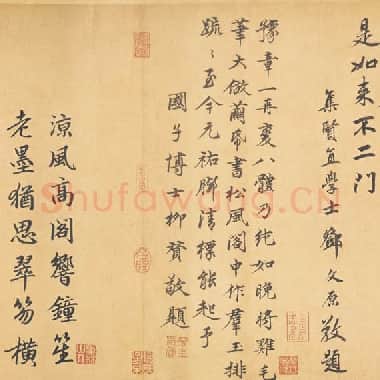 是如来不二门
集賢直學士鄧文原敬題
豫章一再變八體乃純如晚將雞毛
筆大倣繭帋書松風閣中作羣玉排
疏〻至今元祐脚清標能起予
國子博士柳贊敬題
涼風高閣響鐘笙
老墨猶思翠笏橫
Shufawang.CN